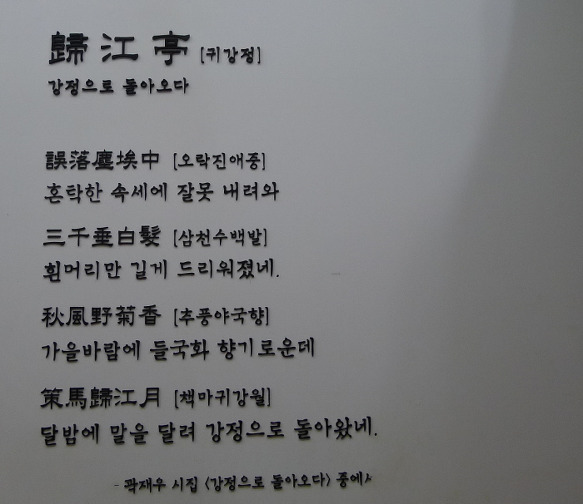 歸江亭 [귀강정]
강정으로 돌아오다
誤落塵埃中 [오락진애중]
혼탁한 속세에 잘못 내려와
三千垂白髮 [삼천수백발]
흰머리만 길게 드리워졌네.
秋風野菊香 [추풍야국향]
가을바람에 들국화 향기로운데
策馬歸江月 [책마귀강월]
달밤에 말을 달려 강정으로 돌아왔네.
- 곽재우 시집 <강정으로 돌아오다> 중에서